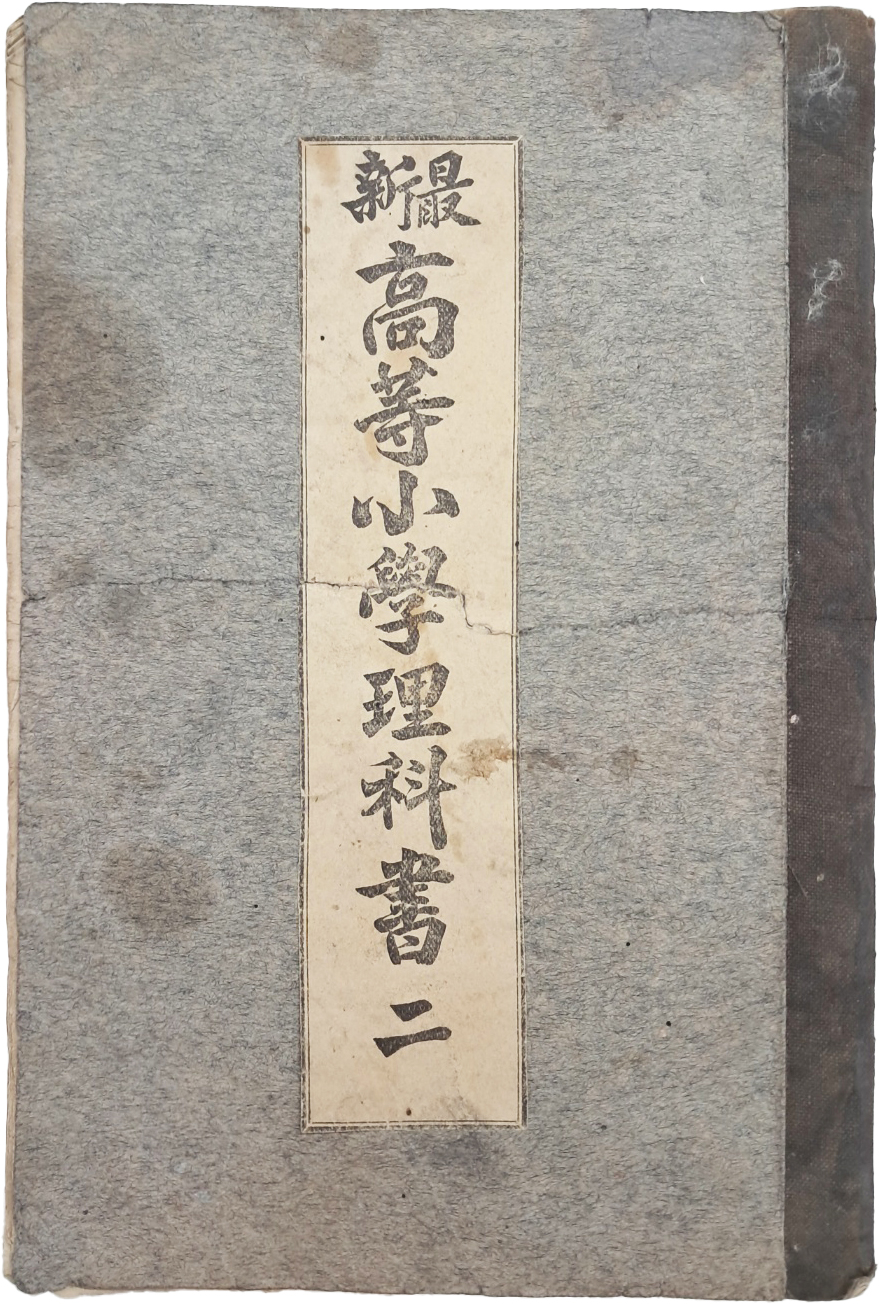 最新
高等小學理科書 二